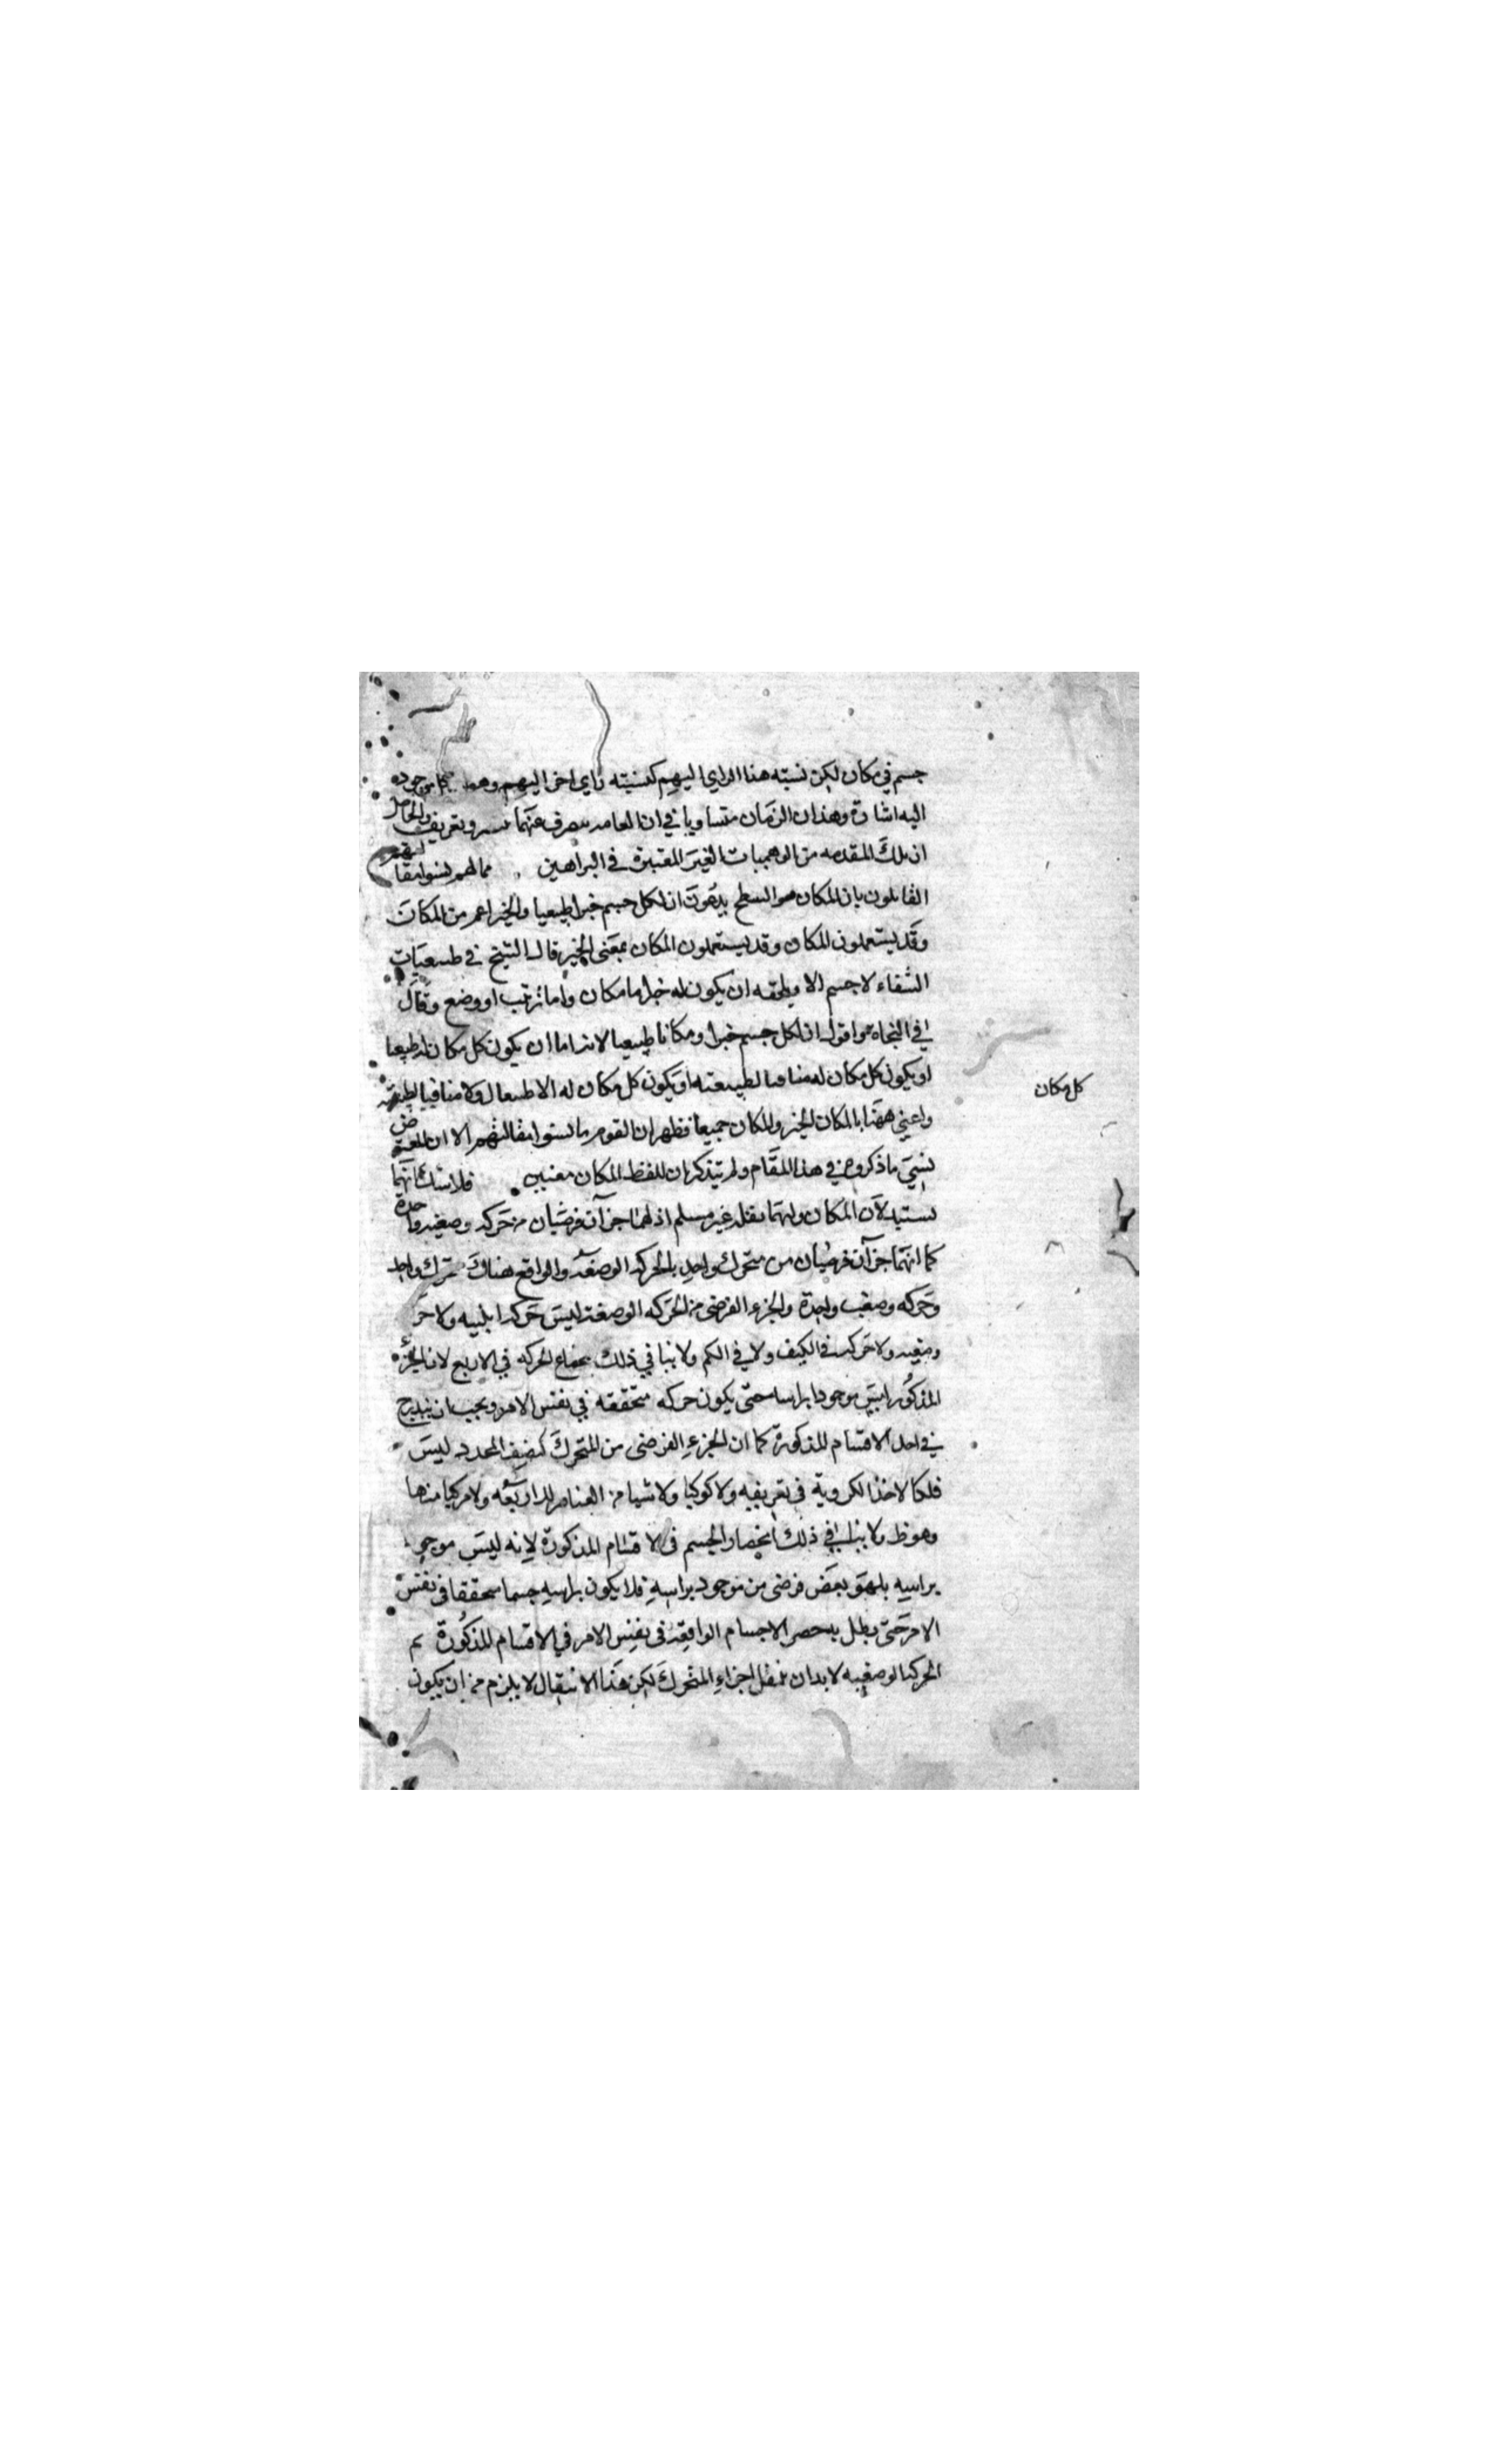 جسم في مكان لكن نسبته هذا الراي اليهم كنسبته راي اخر اليهم وهو
اليه اشارة وهذان الزمان متساويا في ان العامه والحاصل
ان تلك المقدمه من الوهميات الغير المعتبرة في البراهين مما لهم ليسوا متفا
القايلون بان المكان هو السطح يدعون ان لكل جسم خيرا طبيعيا والخيز اعم من المكان
وقد يستعملون المكان وقد يستعملون المكان بمعنى الخيز قال الشيخ في طبيعيات
الشفاء لا جسم الا ويلحقه ان يكون له خيز اما مكان واما ترتب او وضع وقال
في النجاة واقول ان لكل جسم خيزا ومكانا طبيعيا لانه اما ان يكون كل مكان له طبيعيا
كل مكان
او يكون كل مكان له منافيا لطبيعته او يكون كل مكان له الا طبيعيا ولا منافيا لطبيعته
واعني ههنا بالمكان الخيز والمكان جميعا فظهر ان القوم الا ان المعترض
نسي ما ذكروه في هذا المقام ولم يتذكر ان للفظ المكان معنيين فلا شك انهما
يستبدلان المكان غير مسلم اذ لهما جزآن فرضيان من حركه وضعيه واحدة
كما انهما جزآن فرضيان من متحرك واحد بالحركه الوضعيه والواقع هناك متحرك واحد
وحركه وضعيه واحدة والجزء الفرضى من الحركه الوضعيه ليس حركه اينيه ولا حركه
وضعيه ولا حركه في الكيف ولا في الكم ولا ينافي ذلك الحركه في الاربع لان الجزء
المذكور ليس موجودا براسه حتى يكون حركه متحققه في نفس الامر ويجب ان يندرج
في احد الاقسام المذكورة كما ان الجزء الفرضى من المتحرك كنصف المحدد ليس
فلكا لاخذ الكروية في تعريفه ولا كوكبا ولا شيا من العناصر الاربعه ولا مركبا منها
وهو ظ ولا ينافي ذلك انحصار الجسم في الاقسام المذكورة لانه ليس موجودا
براسه بل هو بعض فرضى من موجود براسه فلا يكون براسه جسما متحققا في نفس
الامر حتى يبطل به حصر الاجسام الواقعه في نفس الامر في الاقسام المذكورة ثم
الحركه الوضعيه لا بد ان ينتقل اجزاء المتحرك لكن هذا الانتقال لا يلزم من ان يكون